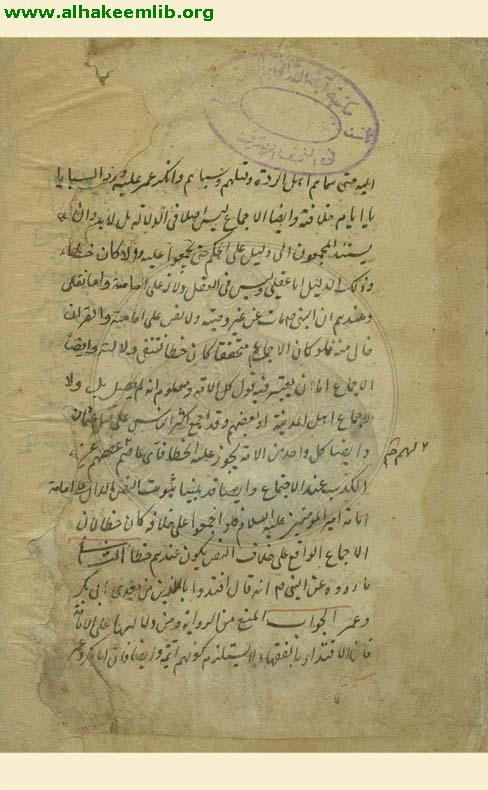 www.alhakeemlib.org
اليه حتى سماهم اهل الردة وقتلهم وسباهم وانكر عمر عليه ورد السبايا
يا ايام خلافته وايضا الاجماع ليس اصلا فى الدلالة بل لا بد وان
يستند المجمعون الى دليل على الحكم حتى يجمعوا عليه والا كان خطأ
وذلك الدليل اما عقلى وليس فى العقل دلالة على امامته واما نقلى
وعندهم ان النبى ص مات عن غير وصية ولا نص على امام والقران
خال منه فلو كان الاجماع متحققا كان خطأ فتنتفى دلالته وايضاً
الاجماع اما ان يعتبر فيه قول كل الامة ومعلوم انه لم يحصل بل ولا
اجماع اهل المدينة او بعضهم وقد اجمع اكثر الناس على قتل عثمان
وايضا كل واحد من الامة يجوز عليه الخطا فاى عاصم عصمهم عن
الكذب عند الاجتماع وايضا قد بينا ثبوت النص الدال على امامة
امير المؤمنين عليه السلام فلو اجمعوا على خلافه كان خطأ لان
الاجماع الواقع على خلاف النص يكون عندهم خطأ الثانى
ما رووه عن النبى ص انه قال اقتدوا باللذين من بعدى ابى بكر
وعمر الجواب المنع من الرواية ومن دلالتها على الامامة
فان الاقتداء بالفقهاء لا يستلزم كونهم ائمة وايضا فان ابا بكر وعمر